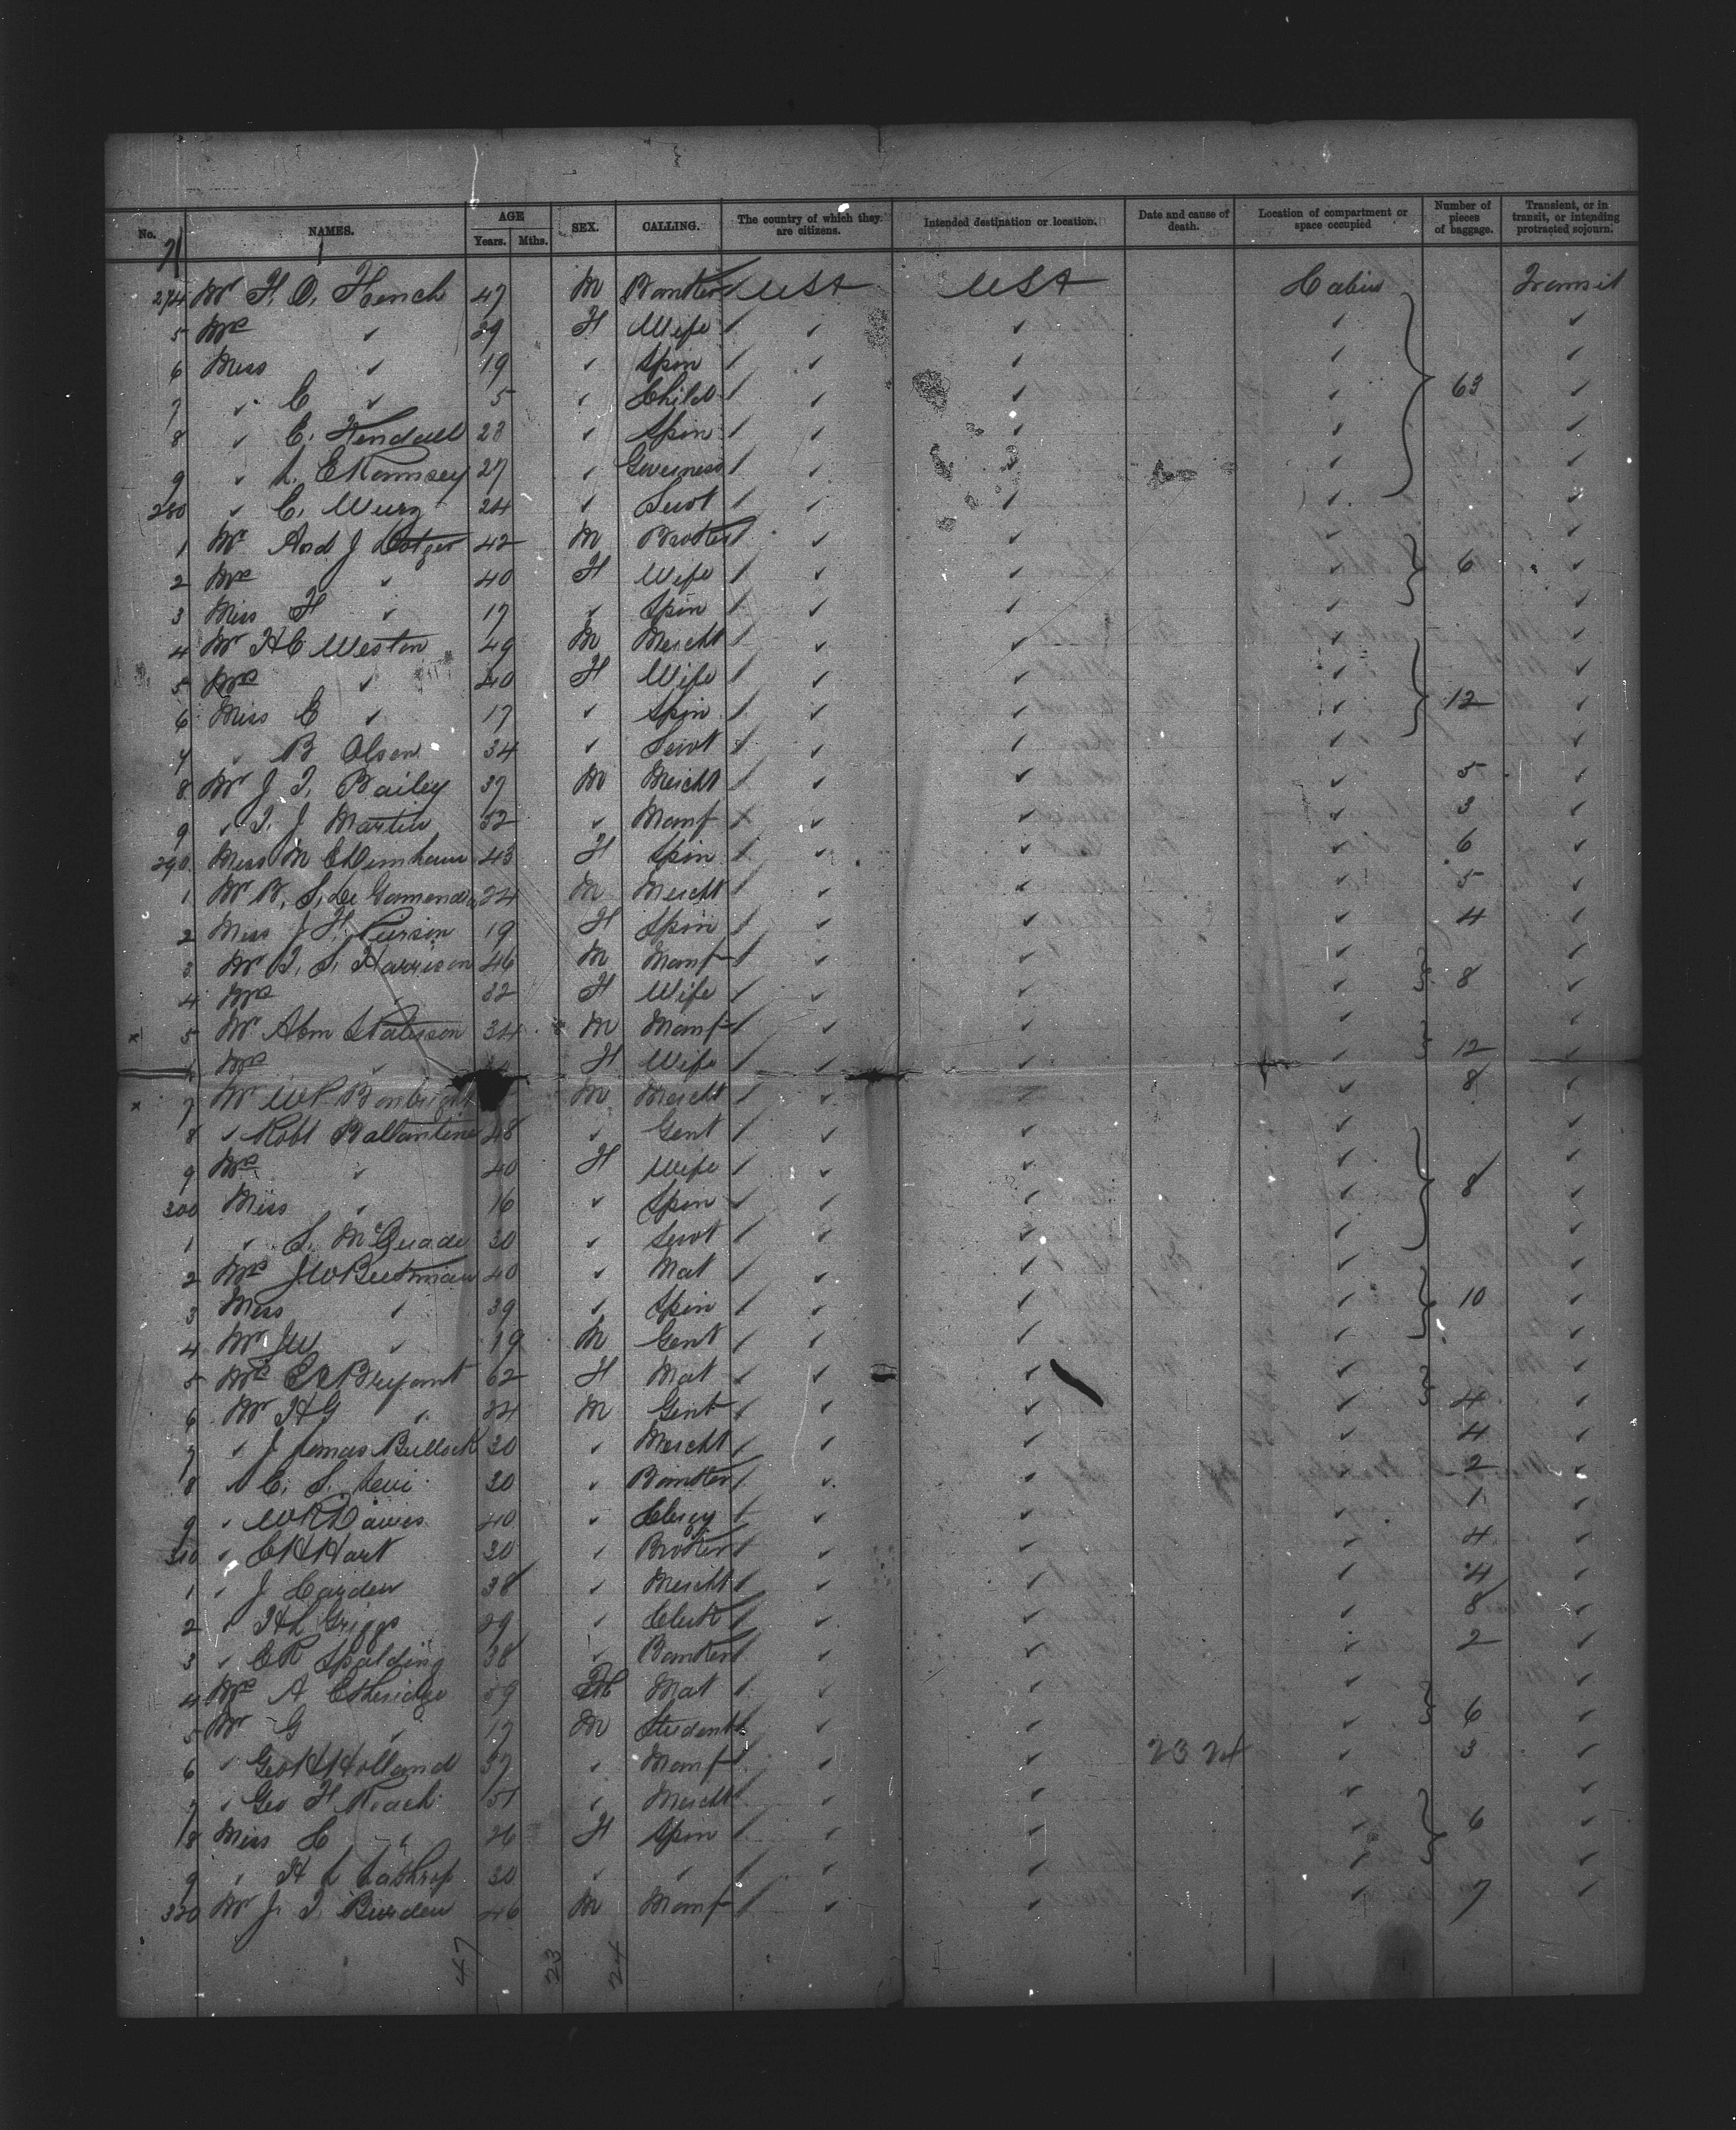 No. NAMES. AGE Years. Mths. SEX. CALLING. The country of which they are citizens. Intended destination or location. Date and cause of death. Location of compartment or space occupied Number of pieces of baggage. Transient, or in transit, or intending protracted sojourn.
274 Mr F. O. French 47 M Banker USA USA Cabin Transit
5 Mrs ✓ 39 F Wife ✓ ✓ ✓ ✓
6 Miss ✓ 19 ✓ Spin ✓ ✓ ✓ ✓
7 ✓ E ✓ 5 ✓ Child ✓ ✓ ✓ 63 ✓
8 ✓ E. Kendall 23 ✓ Spin ✓ ✓ ✓ ✓
9 ✓ L. E Ramsey 27 ✓ Governess ✓ ✓ ✓ ✓
280 ✓ C. Wurz 24 ✓ Servt ✓ ✓ ✓ ✓
1 Mr And J 42 M Broker ✓ ✓ ✓ ✓
2 Mrs ✓ 40 F Wife ✓ ✓ ✓ 6 ✓
3 Miss F ✓ 17 ✓ Spin ✓ ✓ ✓ ✓
4 Mr H C Weston 49 M Mercht ✓ ✓ ✓ ✓
5 Mrs ✓ 40 F Wife ✓ ✓ ✓ ✓
6 Miss E ✓ 17 ✓ Spin ✓ ✓ ✓ 12 ✓
7 ✓ B Olsen 34 ✓ Servt ✓ ✓ ✓ ✓
8 Mr J. T. Bailey 37 M Mercht ✓ ✓ ✓ 5 ✓
9 ✓ T. J Martin 52 ✓ Manf ✓ ✓ ✓ 3 ✓
290 Miss M E 43 F Spin ✓ ✓ ✓ 6 ✓
1 Mr B. S. De 24 M Mercht ✓ ✓ ✓ 5 ✓
2 Miss J F. Pierson 19 F Spin ✓ ✓ ✓ 4 ✓
3 Mr T. S. Harrison 46 M Manf ✓ ✓ ✓ ✓
4 Mrs ✓ 32 F Wife ✓ ✓ ✓ 8 ✓
5 Mr Abm S Paterson 34 M Manf ✓ ✓ ✓ ✓
6 Mrs ✓ F Wife ✓ ✓ ✓ 12 ✓
7 Mr W P Bonbright M Mercht ✓ ✓ 8 ✓
8 ✓ Robt Ballantine 48 ✓ Gent ✓ ✓ ✓ ✓
9 Mrs ✓ 40 F Wife ✓ ✓ ✓ ✓
300 Miss ✓ 16 ✓ Spin ✓ ✓ ✓ 8 ✓
1 ✓ S. McQuade 30 ✓ Servt ✓ ✓ ✓ ✓
2 Mrs J W Beekman 40 ✓ Mat ✓ ✓ ✓ ✓
3 Miss ✓ 39 ✓ Spin ✓ ✓ ✓ 10 ✓
4 Mr J W ✓ 19 M Gent ✓ ✓ ✓ ✓
5 Mrs E R Bryant 62 F Mat ✓ ✓ ✓ ✓
6 Mr H G ✓ 24 M Gent ✓ ✓ ✓ 4 ✓
7 ✓ J Jonas Bullock 30 ✓ Mercht ✓ ✓ ✓ 4 ✓
8 ✓ E. S. Levi 30 ✓ Banker ✓ ✓ ✓ 2 ✓
9 ✓ W R Davies 40 ✓ Clergy ✓ ✓ ✓ 1 ✓
310 ✓ E H Hart 30 ✓ Broker ✓ ✓ ✓ 4 ✓
1 ✓ J Carden 38 ✓ Mercht ✓ ✓ ✓ 4 ✓
2 ✓ H L Griggs 29 ✓ Clerk ✓ ✓ 8 ✓
3 ✓ E R Spalding 38 ✓ Banker ✓ ✓ ✓ 2 ✓
4 Mrs A Etheridge 39 F Mat ✓ ✓ ✓ ✓
5 Mr G ✓ 17 M Student ✓ ✓ ✓ 6 ✓
6 ✓ Geo H Holland 37 ✓ Manf ✓ 23 24 ✓ 3 ✓
7 ✓ Geo F Roach 51 ✓ Mercht ✓ ✓ ✓ ✓
8 Miss C ✓ 26 F Spin ✓ ✓ ✓ 6 ✓
9 ✓ H L Lathrop 30 ✓ ✓ ✓ ✓ ✓ ✓
320 Mr J. T. Burden 46 M Manf ✓ ✓ ✓ 7 ✓
47 23 24